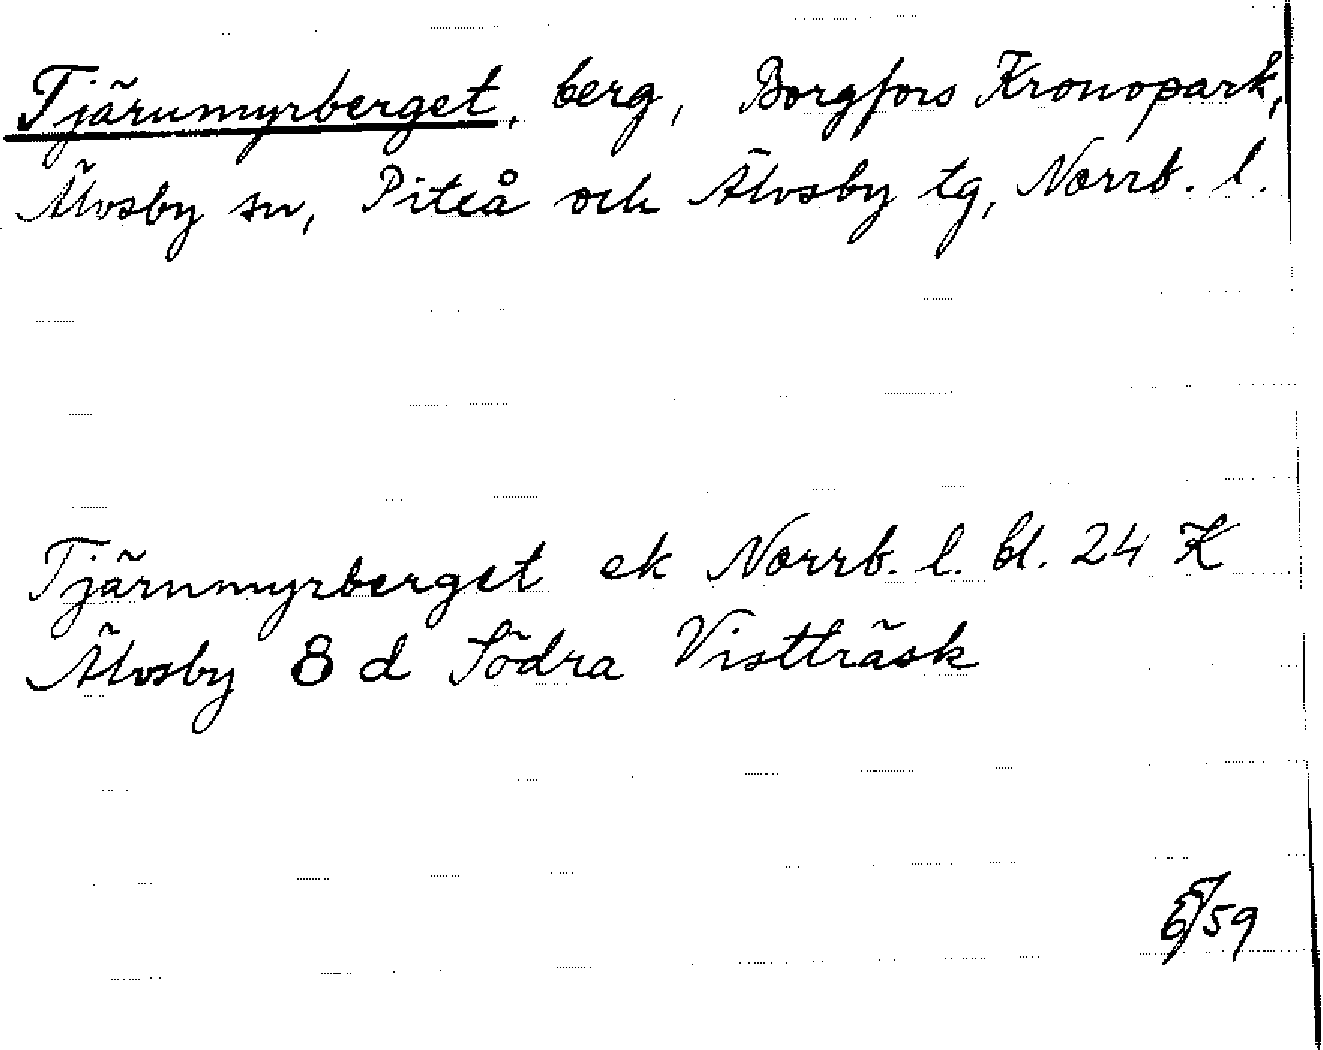 Tjärumyrberget, berg, Borgfors Kronopark,
Älvsby sn, Piteå och Älvsby tg, Norrb. l.
Tjärumyrberget ek Norrb. l. bl. 24 K
Älvsby 8 d Södra Vistträsk
/59